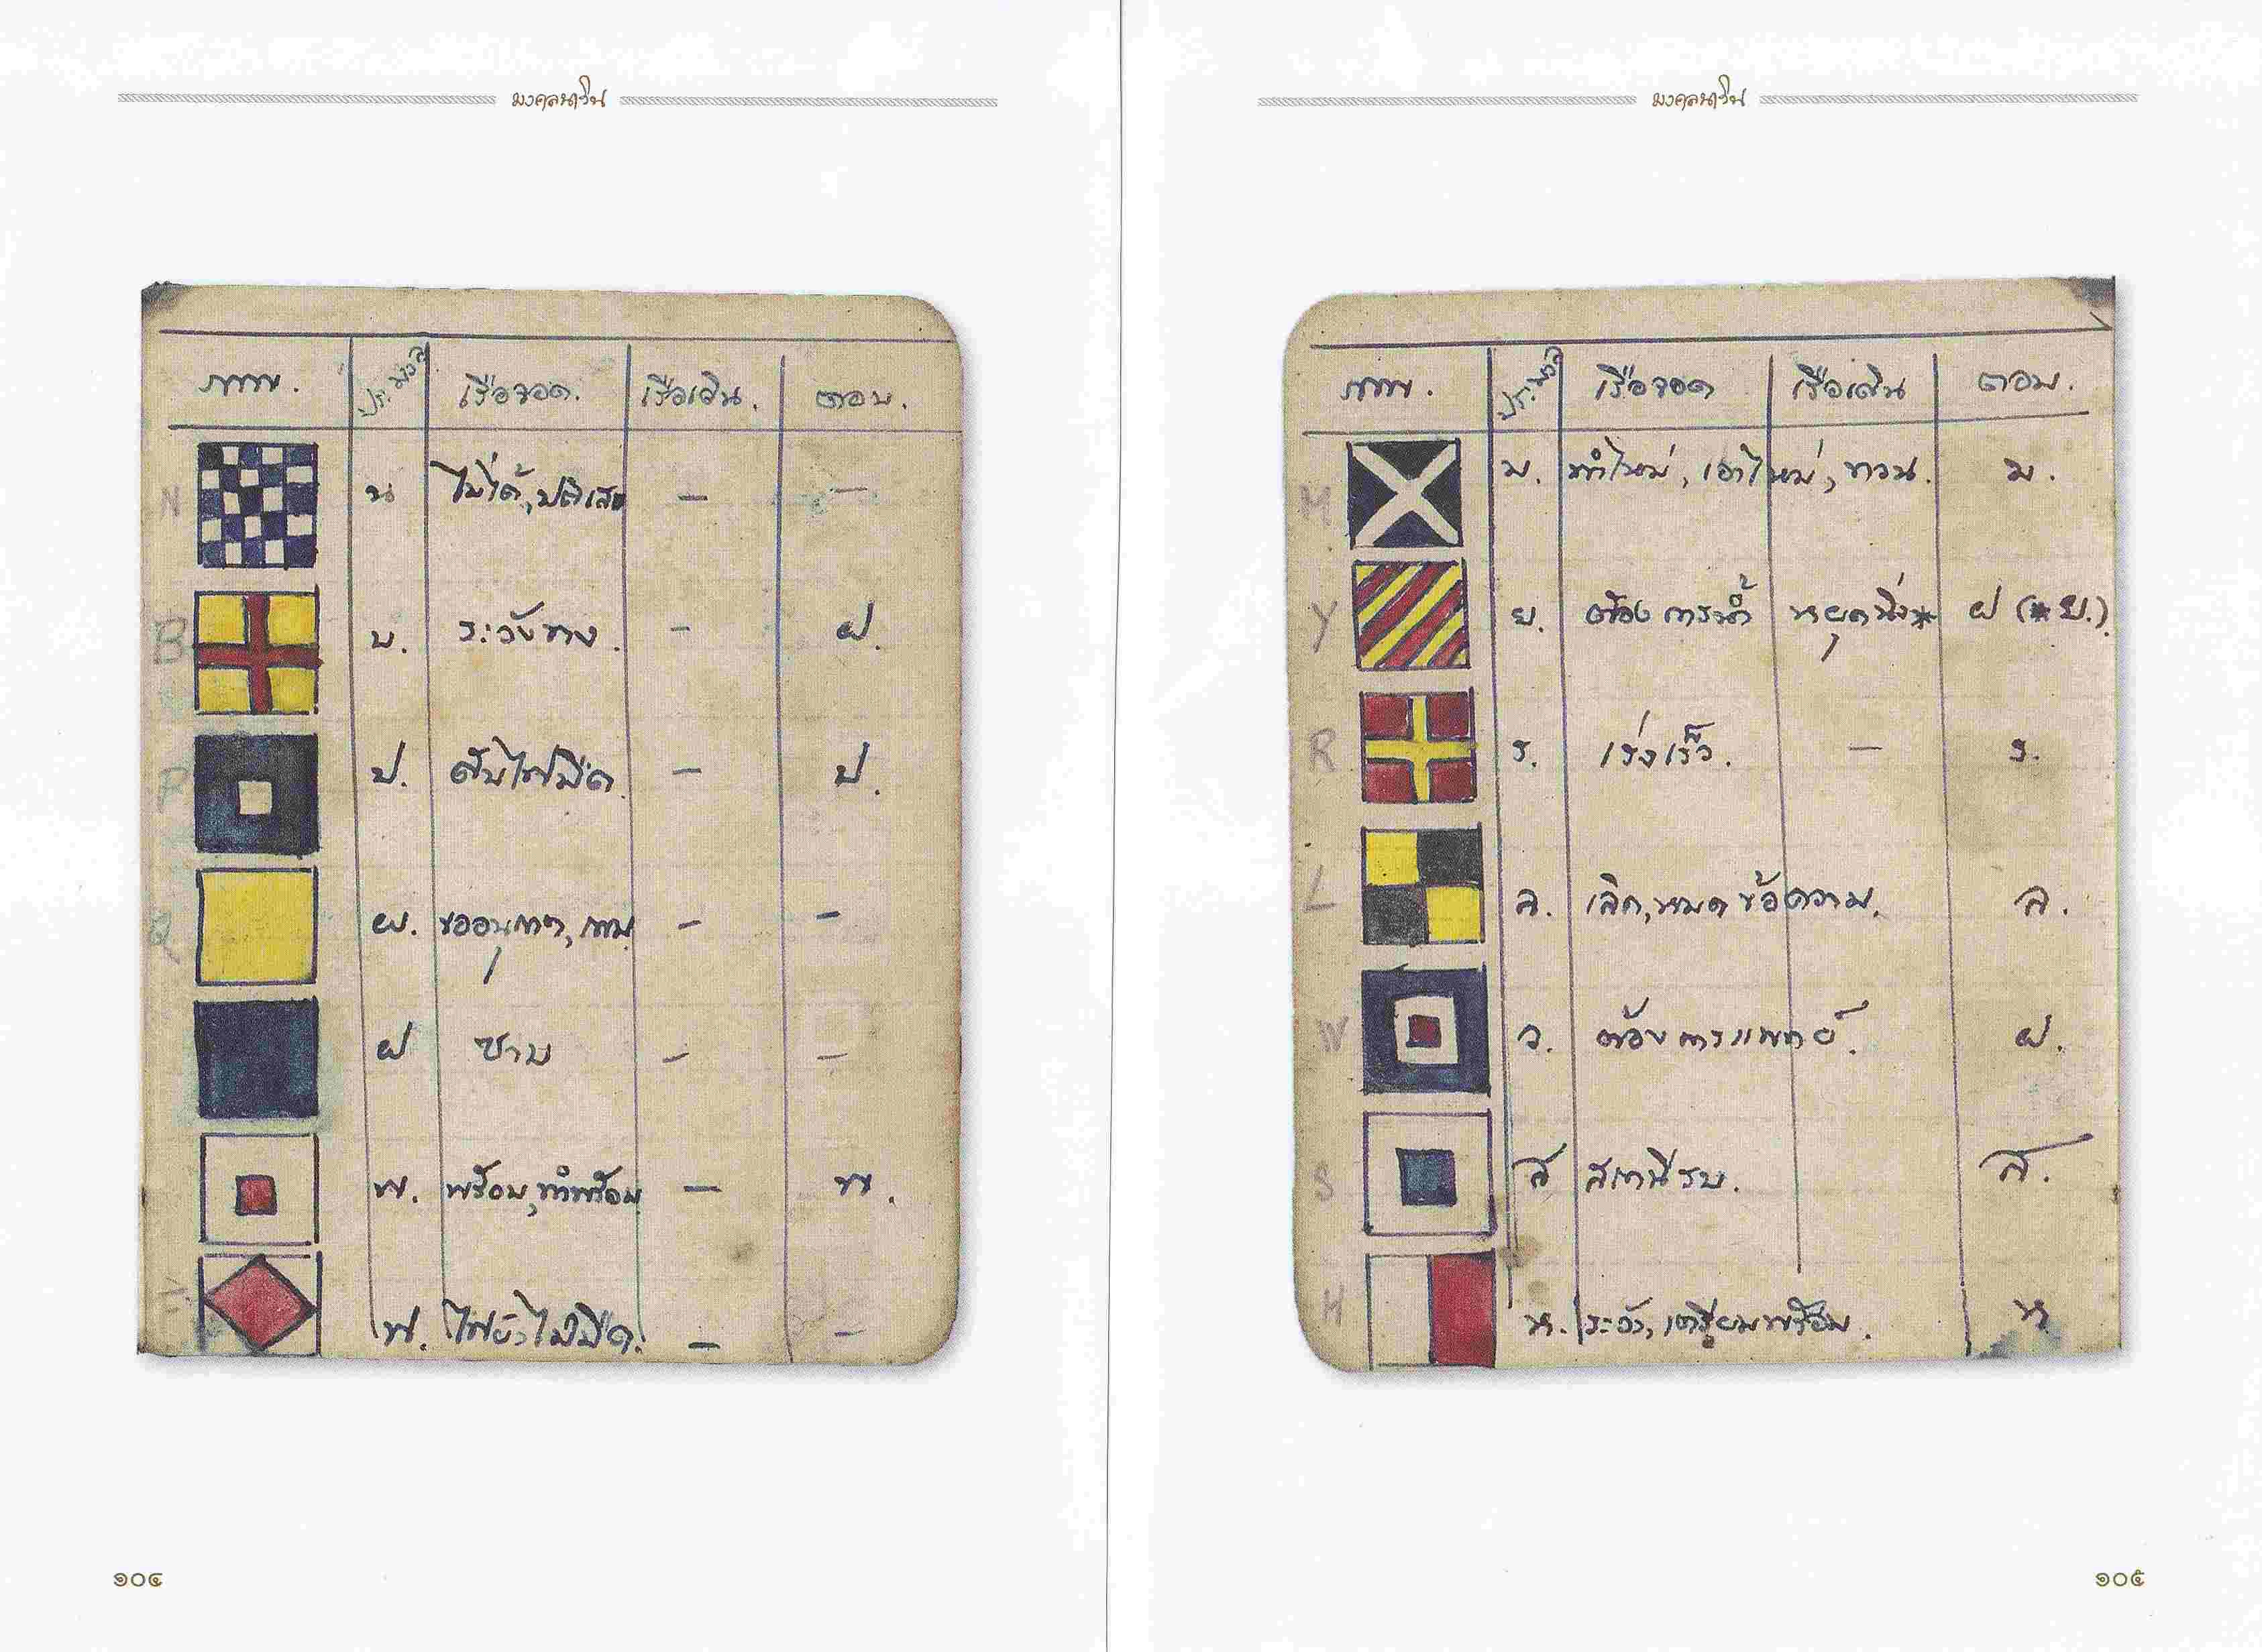 มงคลนาวิน
ภาพ. ประมวล เรือจอด. เรือเดิน. ตอบ.
N น ไม่ได้, ปฏิเสธ — —
B บ. ระวังทาง. — ฝ.
P ป. ดับไฟมืด. — ป.
Q ผ. ขออนุญาต, ถาม. — —
ฝ ซาบ — —
พ. พร้อม, ทำพร้อม — พ.
F ฟ. ไฟยังไม่มืด. — —
๑๐๔
มงคลนาวิน
ภาพ. ประมวล เรือจอด เรือเดิน ตอบ.
M ม. ทำใหม่, เอาใหม่, ทวน. ม.
Y ย. ต้องการน้ำ หยุดนิ่ง* ฝ (* ย.).
R ร. เร่งเร็ว. — ร.
L ล. เลิก, หมดข้อความ. ล.
W ว. ต้องการแพทย์. ฝ.
S ส สถานีรบ. ส.
H ห. ระวัง, เตรียมพร้อม. ห
๑๐๕